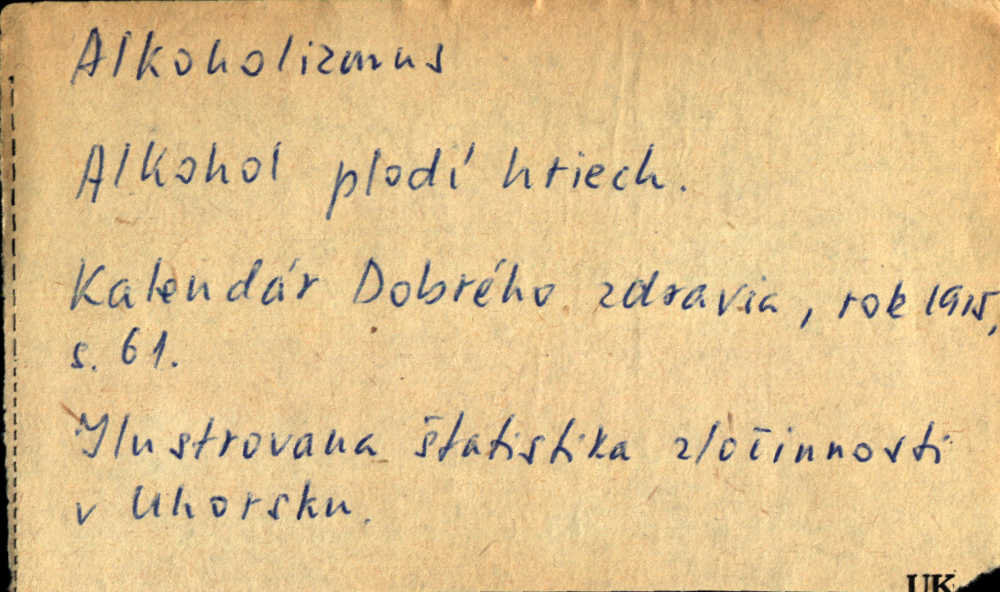 Alkoholizmus
Alkohol plodí hriech.
Kalendár Dobrého zdravia, rok 1915,
s. 61.
Ilustrovana štatistika zločinnosti
v Uhorsku.
UK